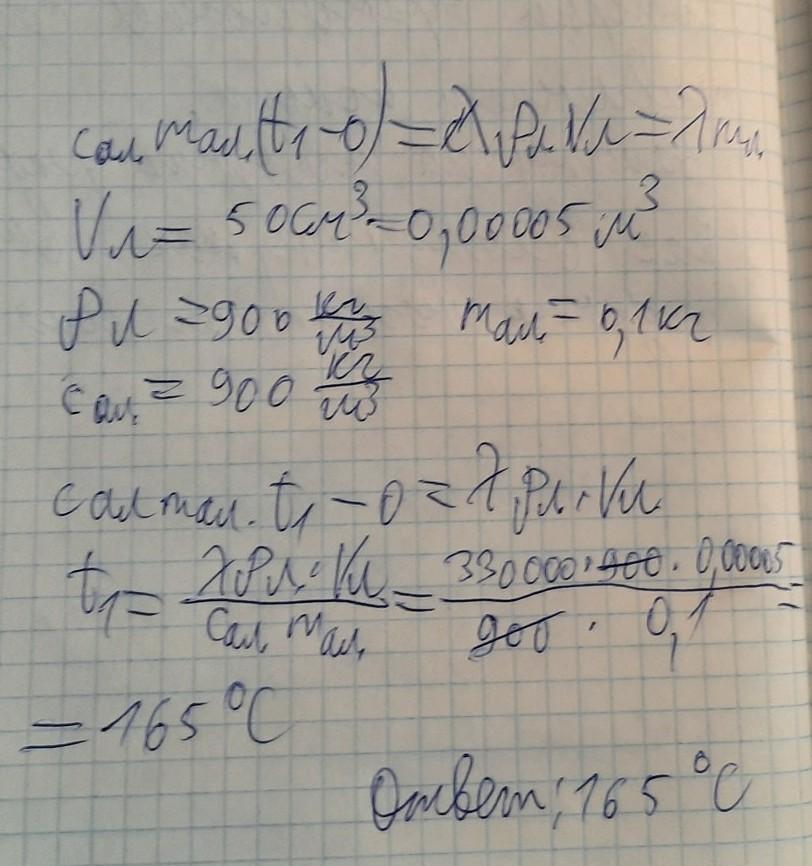 cал. mал. (t₁-0) = λ ρл Vл = λ mл
Vл = 50 см³ = 0,00005 м³
ρл = 900 кг/м³ mал. = 0,1 кг
cал. = 900 кг/м³
cал mал. t₁ - 0 = λ ρл. Vл
t₁ = λ ρл. Vл / cал. mал. = 330000 · 900 · 0,00005 / 900 · 0,1 =
= 165 °C
Ответ: 165 °C